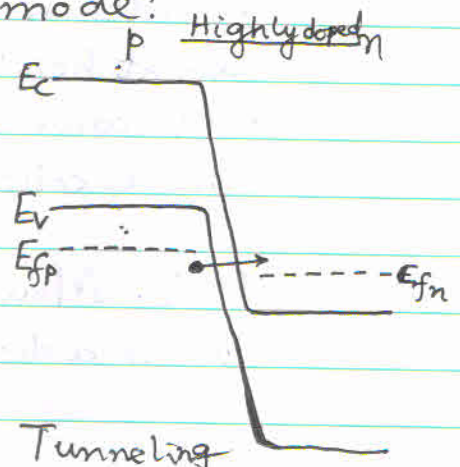 mode:
p Highly doped n
Ec
Ev
Efp
Efn
Tunneling